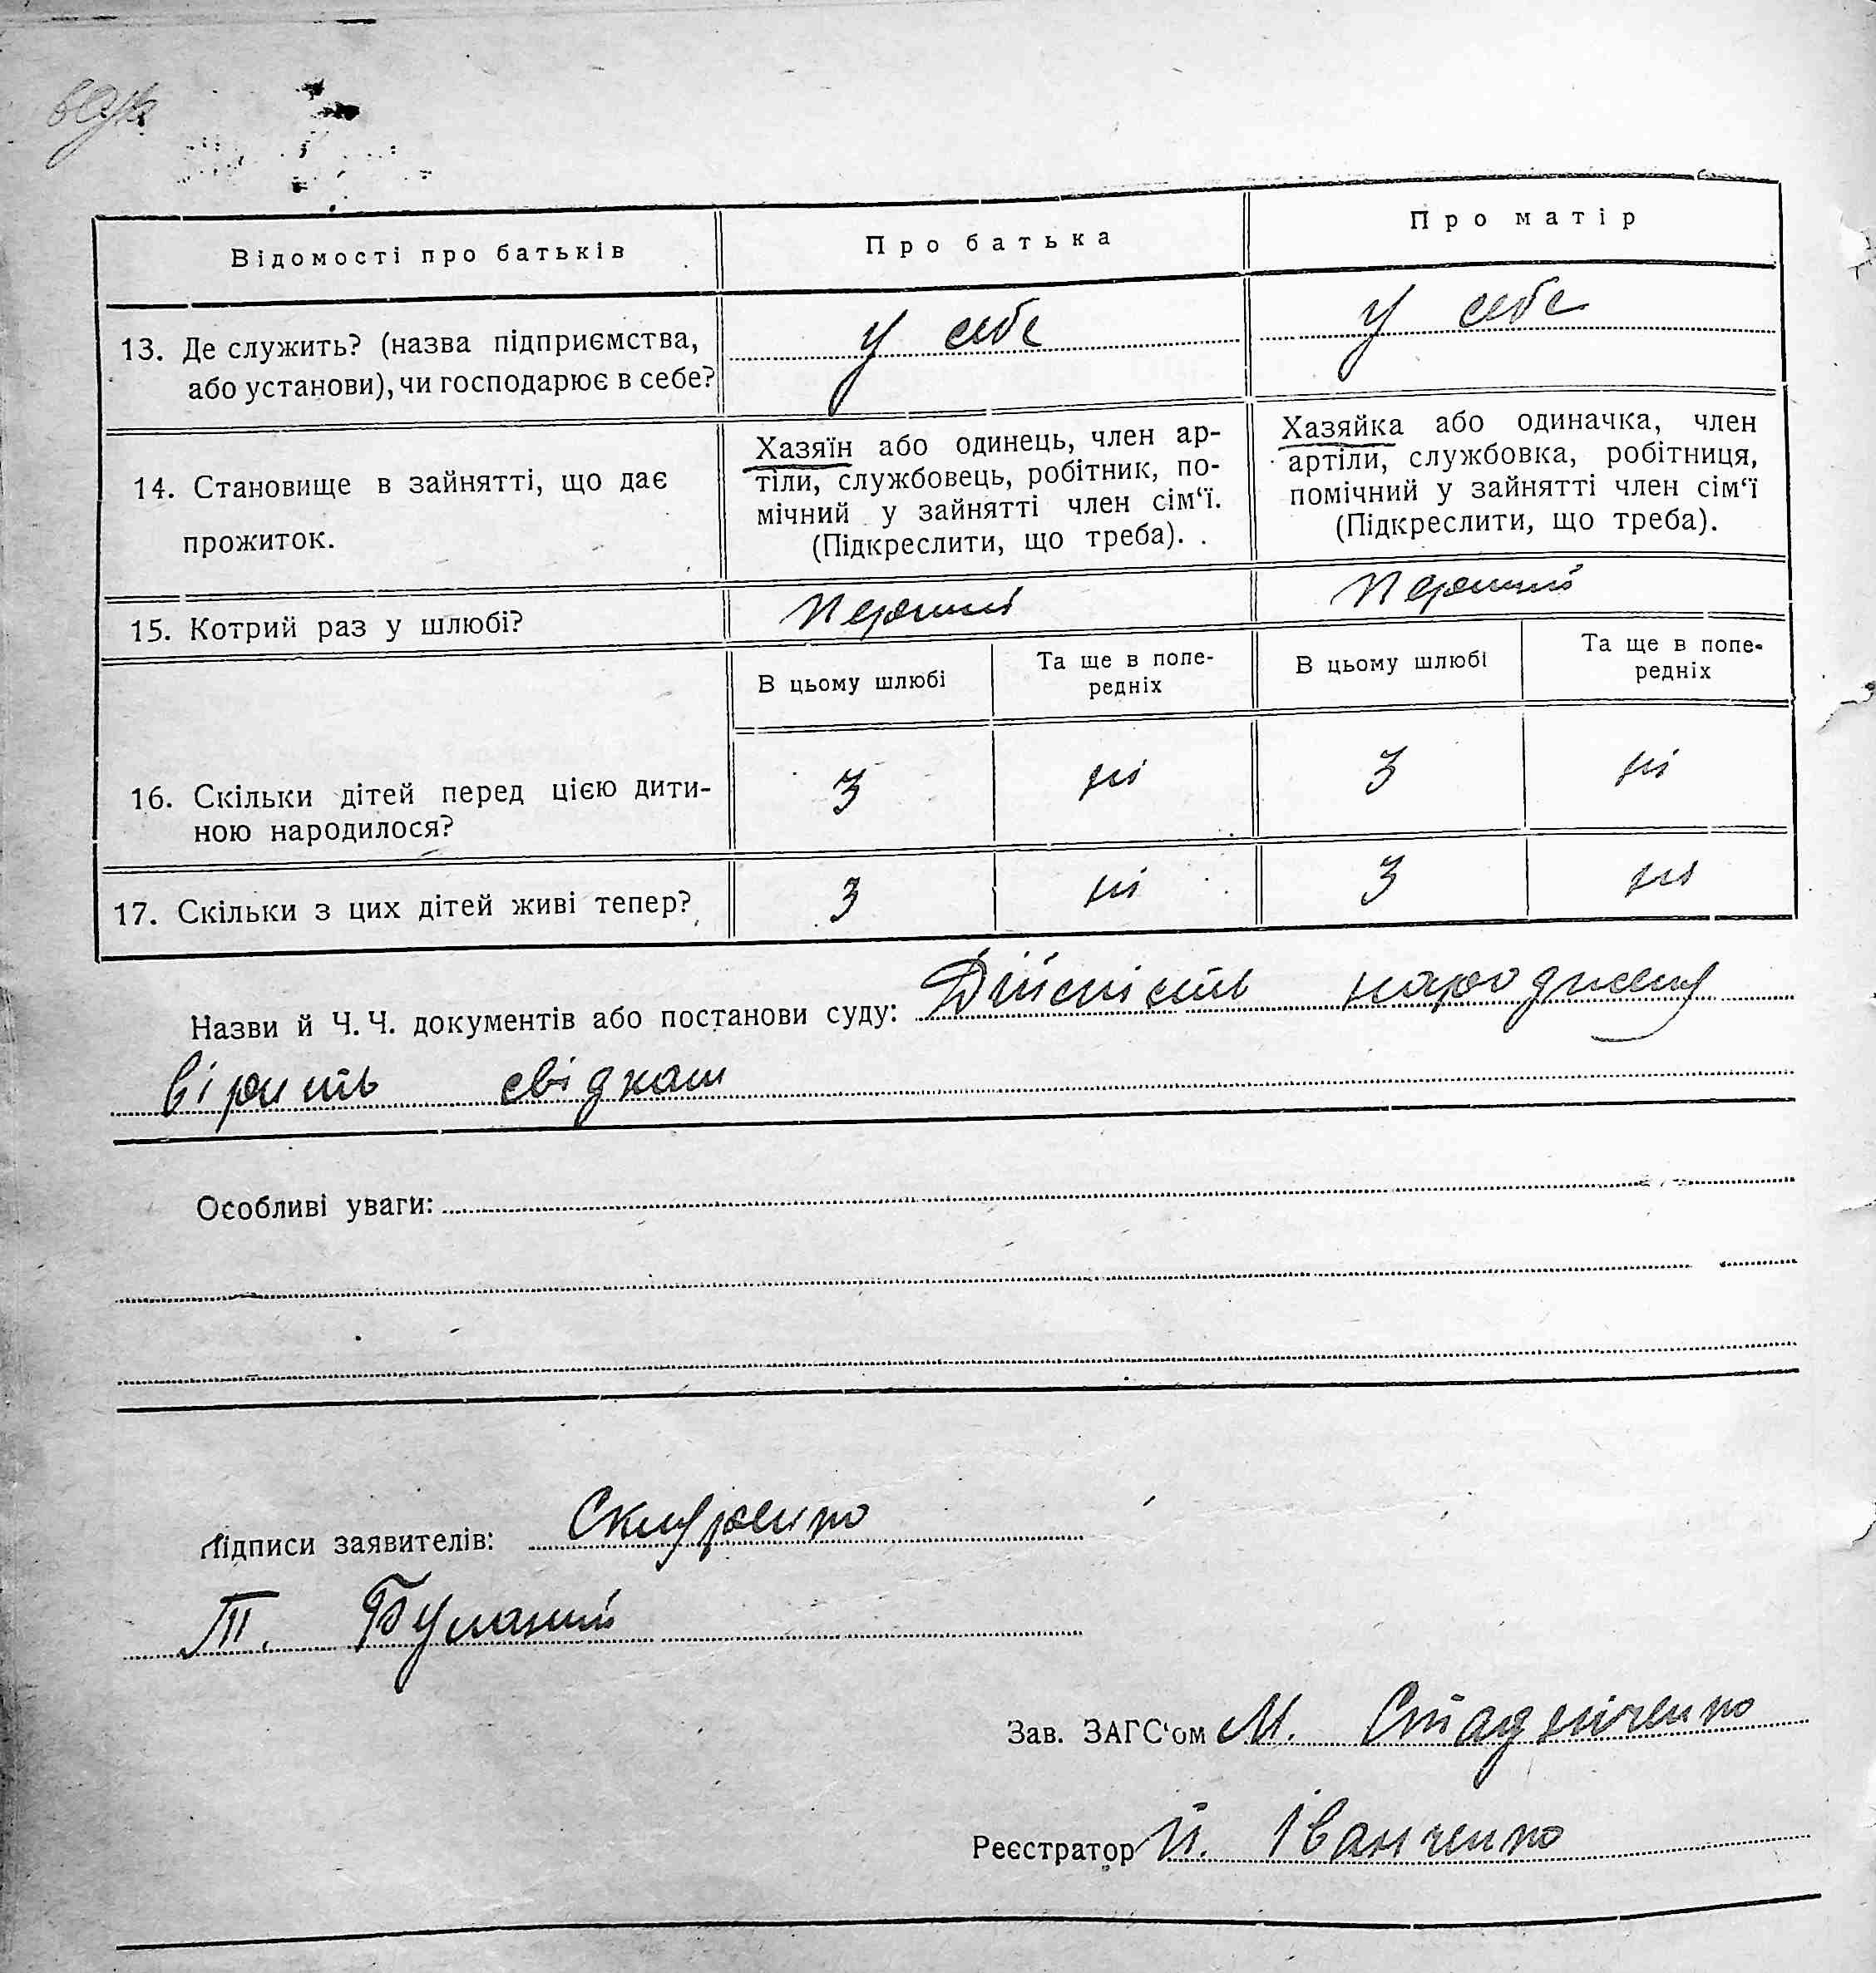 Відомості про батьків
Про батька
Про матір
13. Де служить? (назва підприємства,
або установи), чи господарює в себе?
у себе
у себе
14. Становище в зайнятті, що дає
прожиток.
Хазяїн або одинець, член ар-
тіли, службовець, робітник, по-
мічний у зайнятті член сім‘ї.
(Підкреслити, що треба).
Хазяйка або одиначка, член
артіли, службовка, робітниця,
помічний у зайнятті член сім‘ї
(Підкреслити, що треба).
15. Котрий раз у шлюбі?
Перший
Перший
В цьому шлюбі
Та ще в попе-
редніх
В цьому шлюбі
Та ще в попе-
редніх
16. Скільки дітей перед цією дити-
ною народилося?
3
ні
3
ні
17. Скільки з цих дітей живі тепер?
3
ні
3
ні
Назви й Ч. Ч. документів або постанови суду: Дійсність народження
вірить свідкам
Особливі уваги:
Підписи заявителів:
Т. Буланий
Зав. ЗАГС‘ом М. Стадніченко
Реєстратор Й. Іванченко